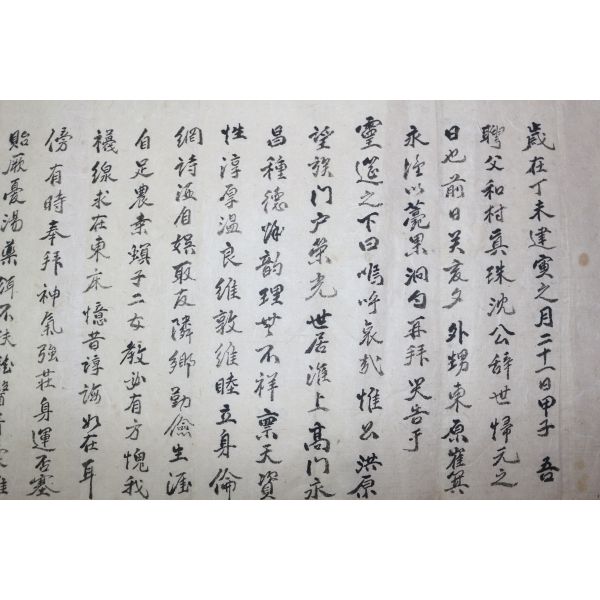 歲在丁未建寅之月二十一日甲子 吾
聘父和村眞珠沈公辞世歸元之
日也前日癸亥夕外甥東原崔箕
永謹以薨果泂勺再拜哭告于
靈筵之下曰嗚呼哀哉惟公洪原
望族門户榮光世居淮上高門永
昌種德 韵理無不祥禀天資
性淳厚温良維敦維睦立身倫
網詩酒自娯取友隣鄉勤儉生涯
自足農桒 子二女教必有方愧我
襪線求在東床憶昔諄誨如在耳
傍有時奉拜神氣強莊身運否塞
貽厥憂湯藥餌不扶